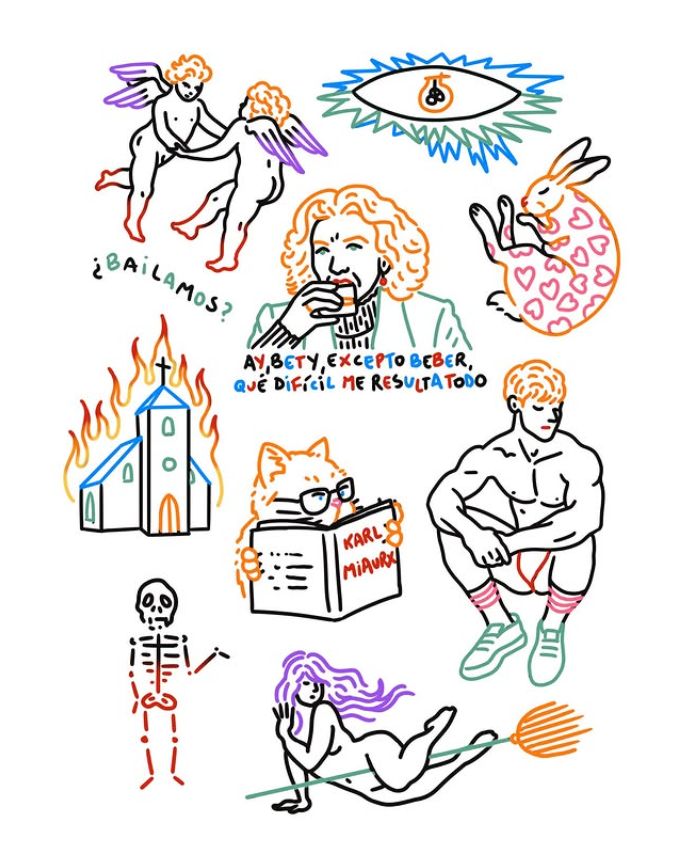 ¿BAiLAMOS?
AY, BETY, EXCEPTO BEBER,
QUÉ DiFíCiL ME RESULTA TODO
KARL
MiAURX